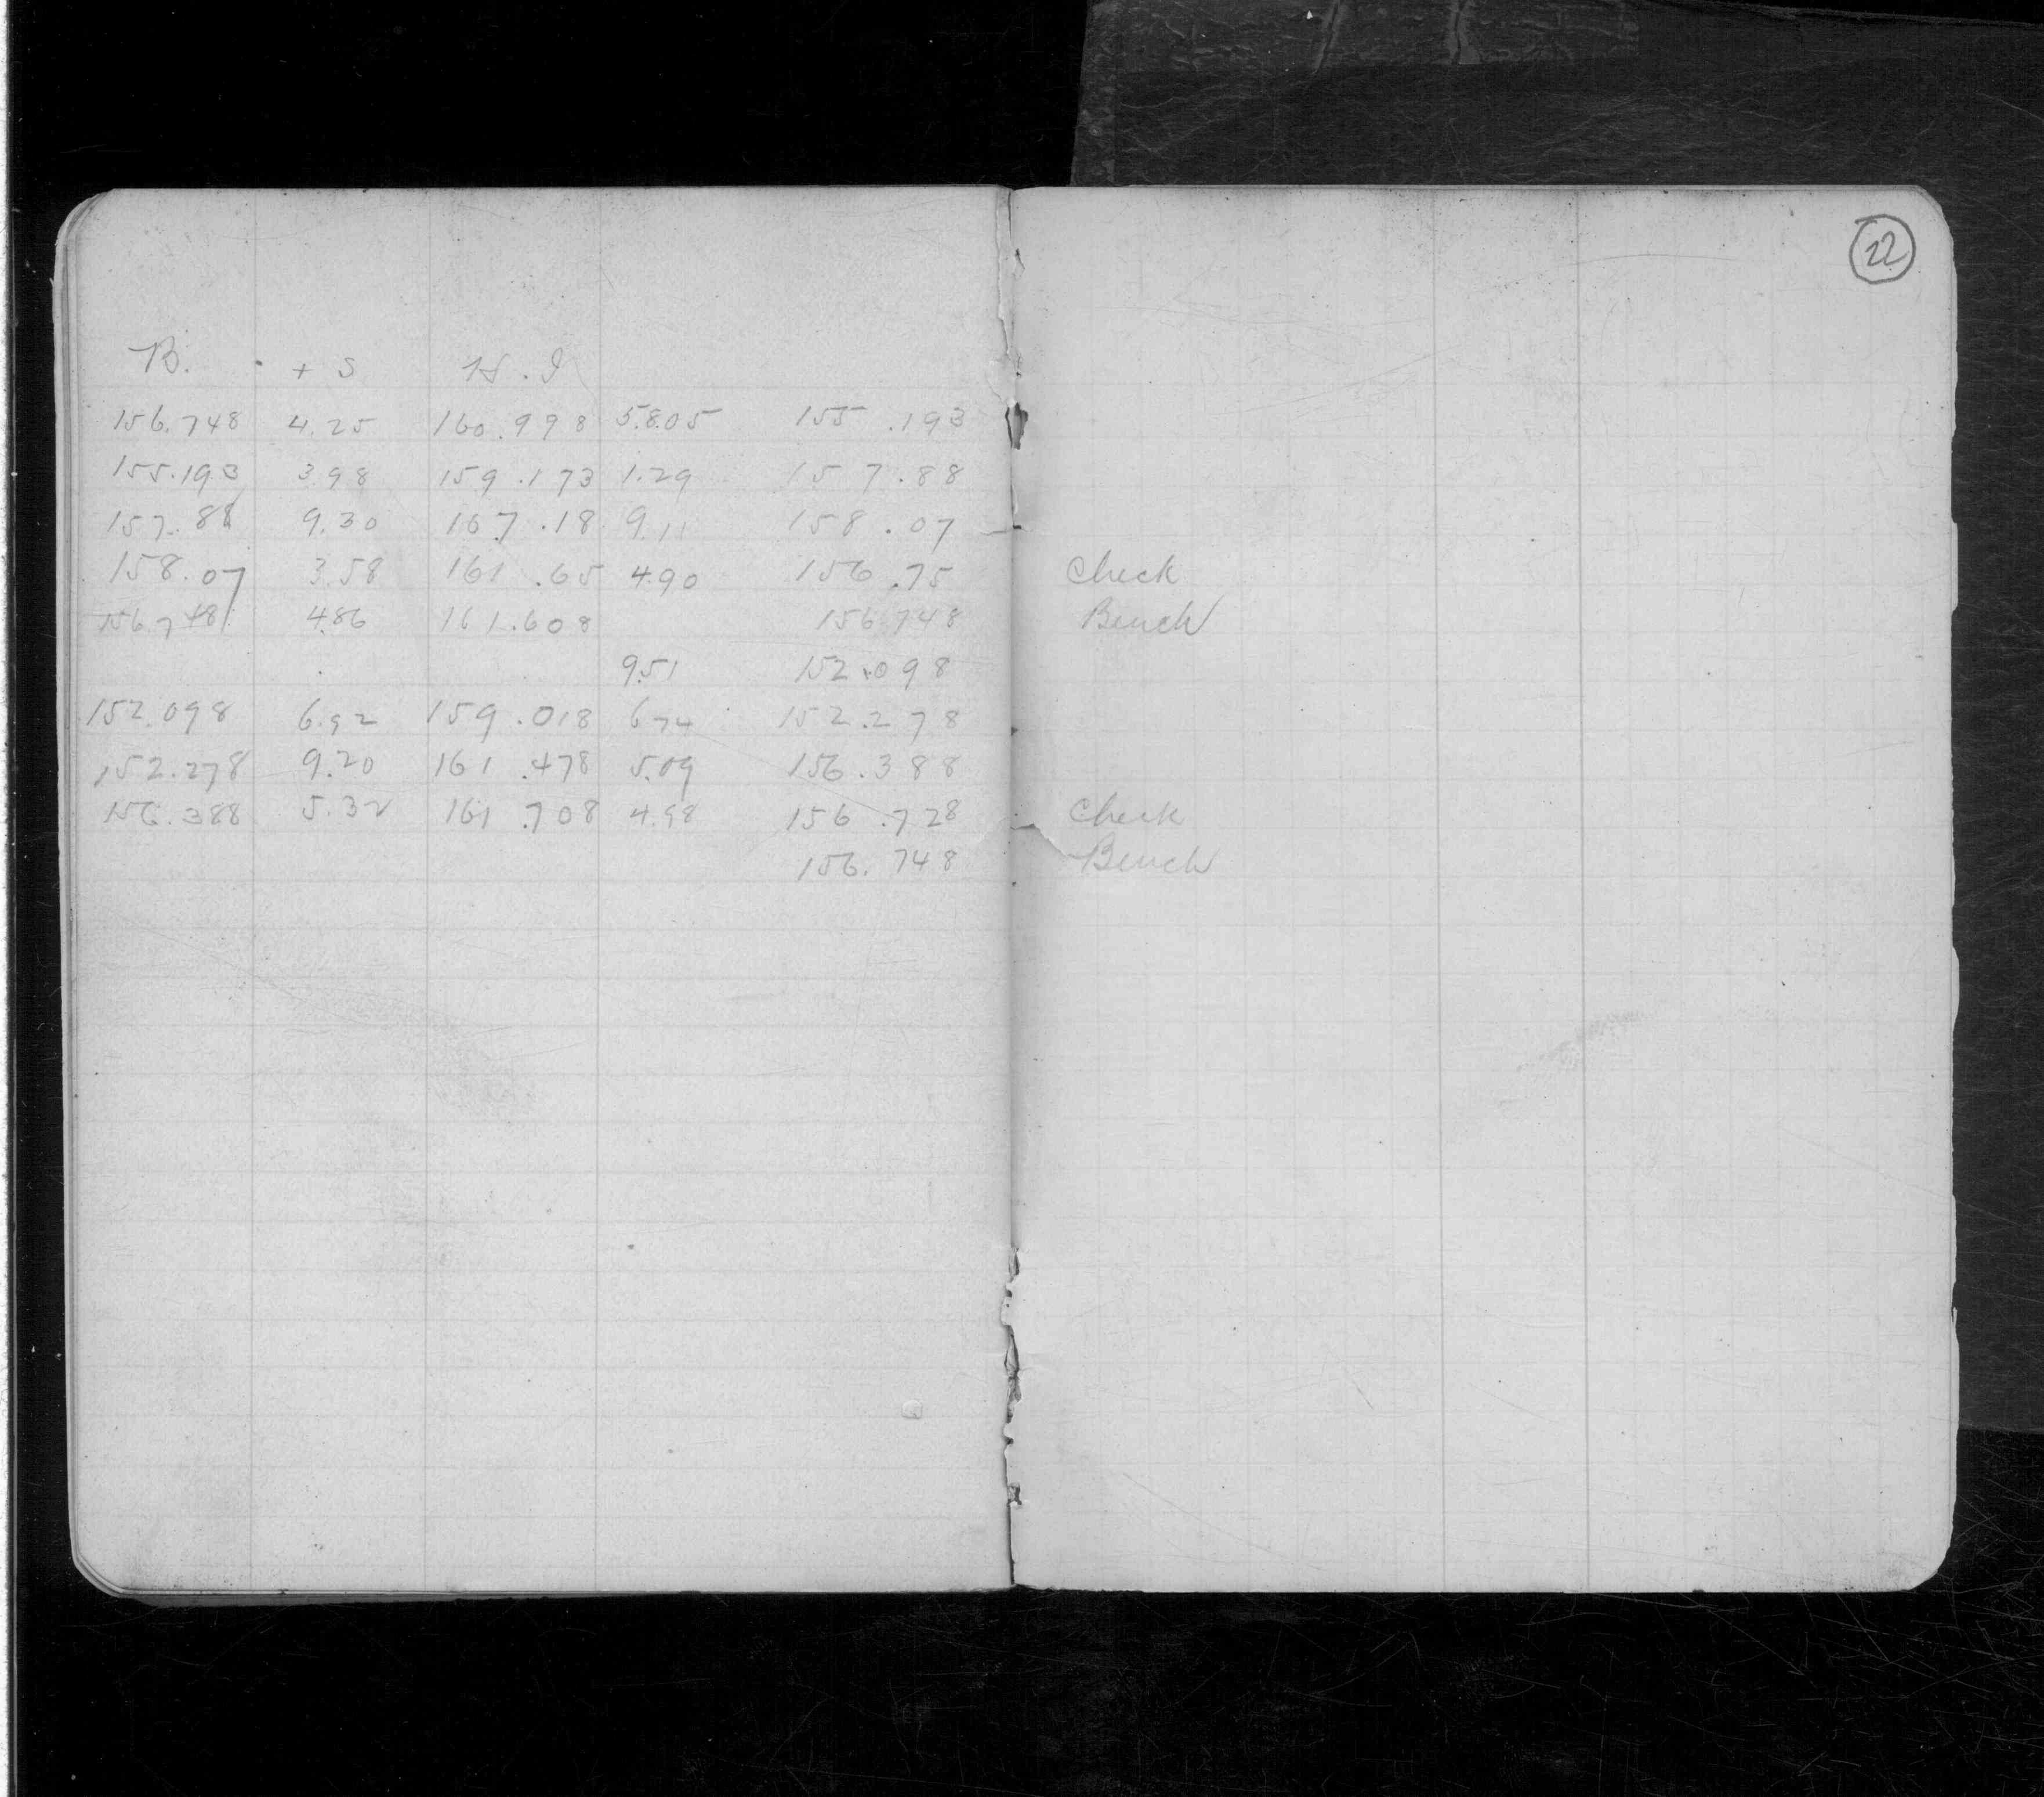 22
B. + S H. I
156.748 4.25 160.998 5.805 155.193
155.193 3.98 159.173 1.29 157.88
157.88 9.30 167.18 9.11 158.07
158.07 3.58 161.65 4.90 156.75 Check
156.748 4.86 161.608 156.748 Bench
9.51 152.098
152.098 6.92 159.018 6.74 152.278
152.278 9.20 161.478 5.09 156.388
156.388 5.32 161.708 4.98 156.728 Check
156.748 Bench